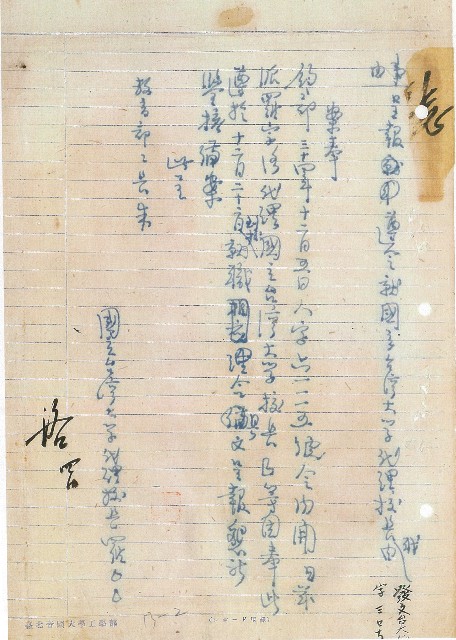 事由 呈報遵令就國立台灣大學代理校長由
發文台大
案奉
鈞部三十四年十二月五日人字六一一二五號令內開日茲
派羅宗洛代理國立台灣大學校長 等因奉此
遵於十二月二十日就職 理合備文呈報懇祈
鑒核備案
此呈
教育部部長朱
國立台灣大學代理校長羅○○
洛
臺北帝國大學工學部